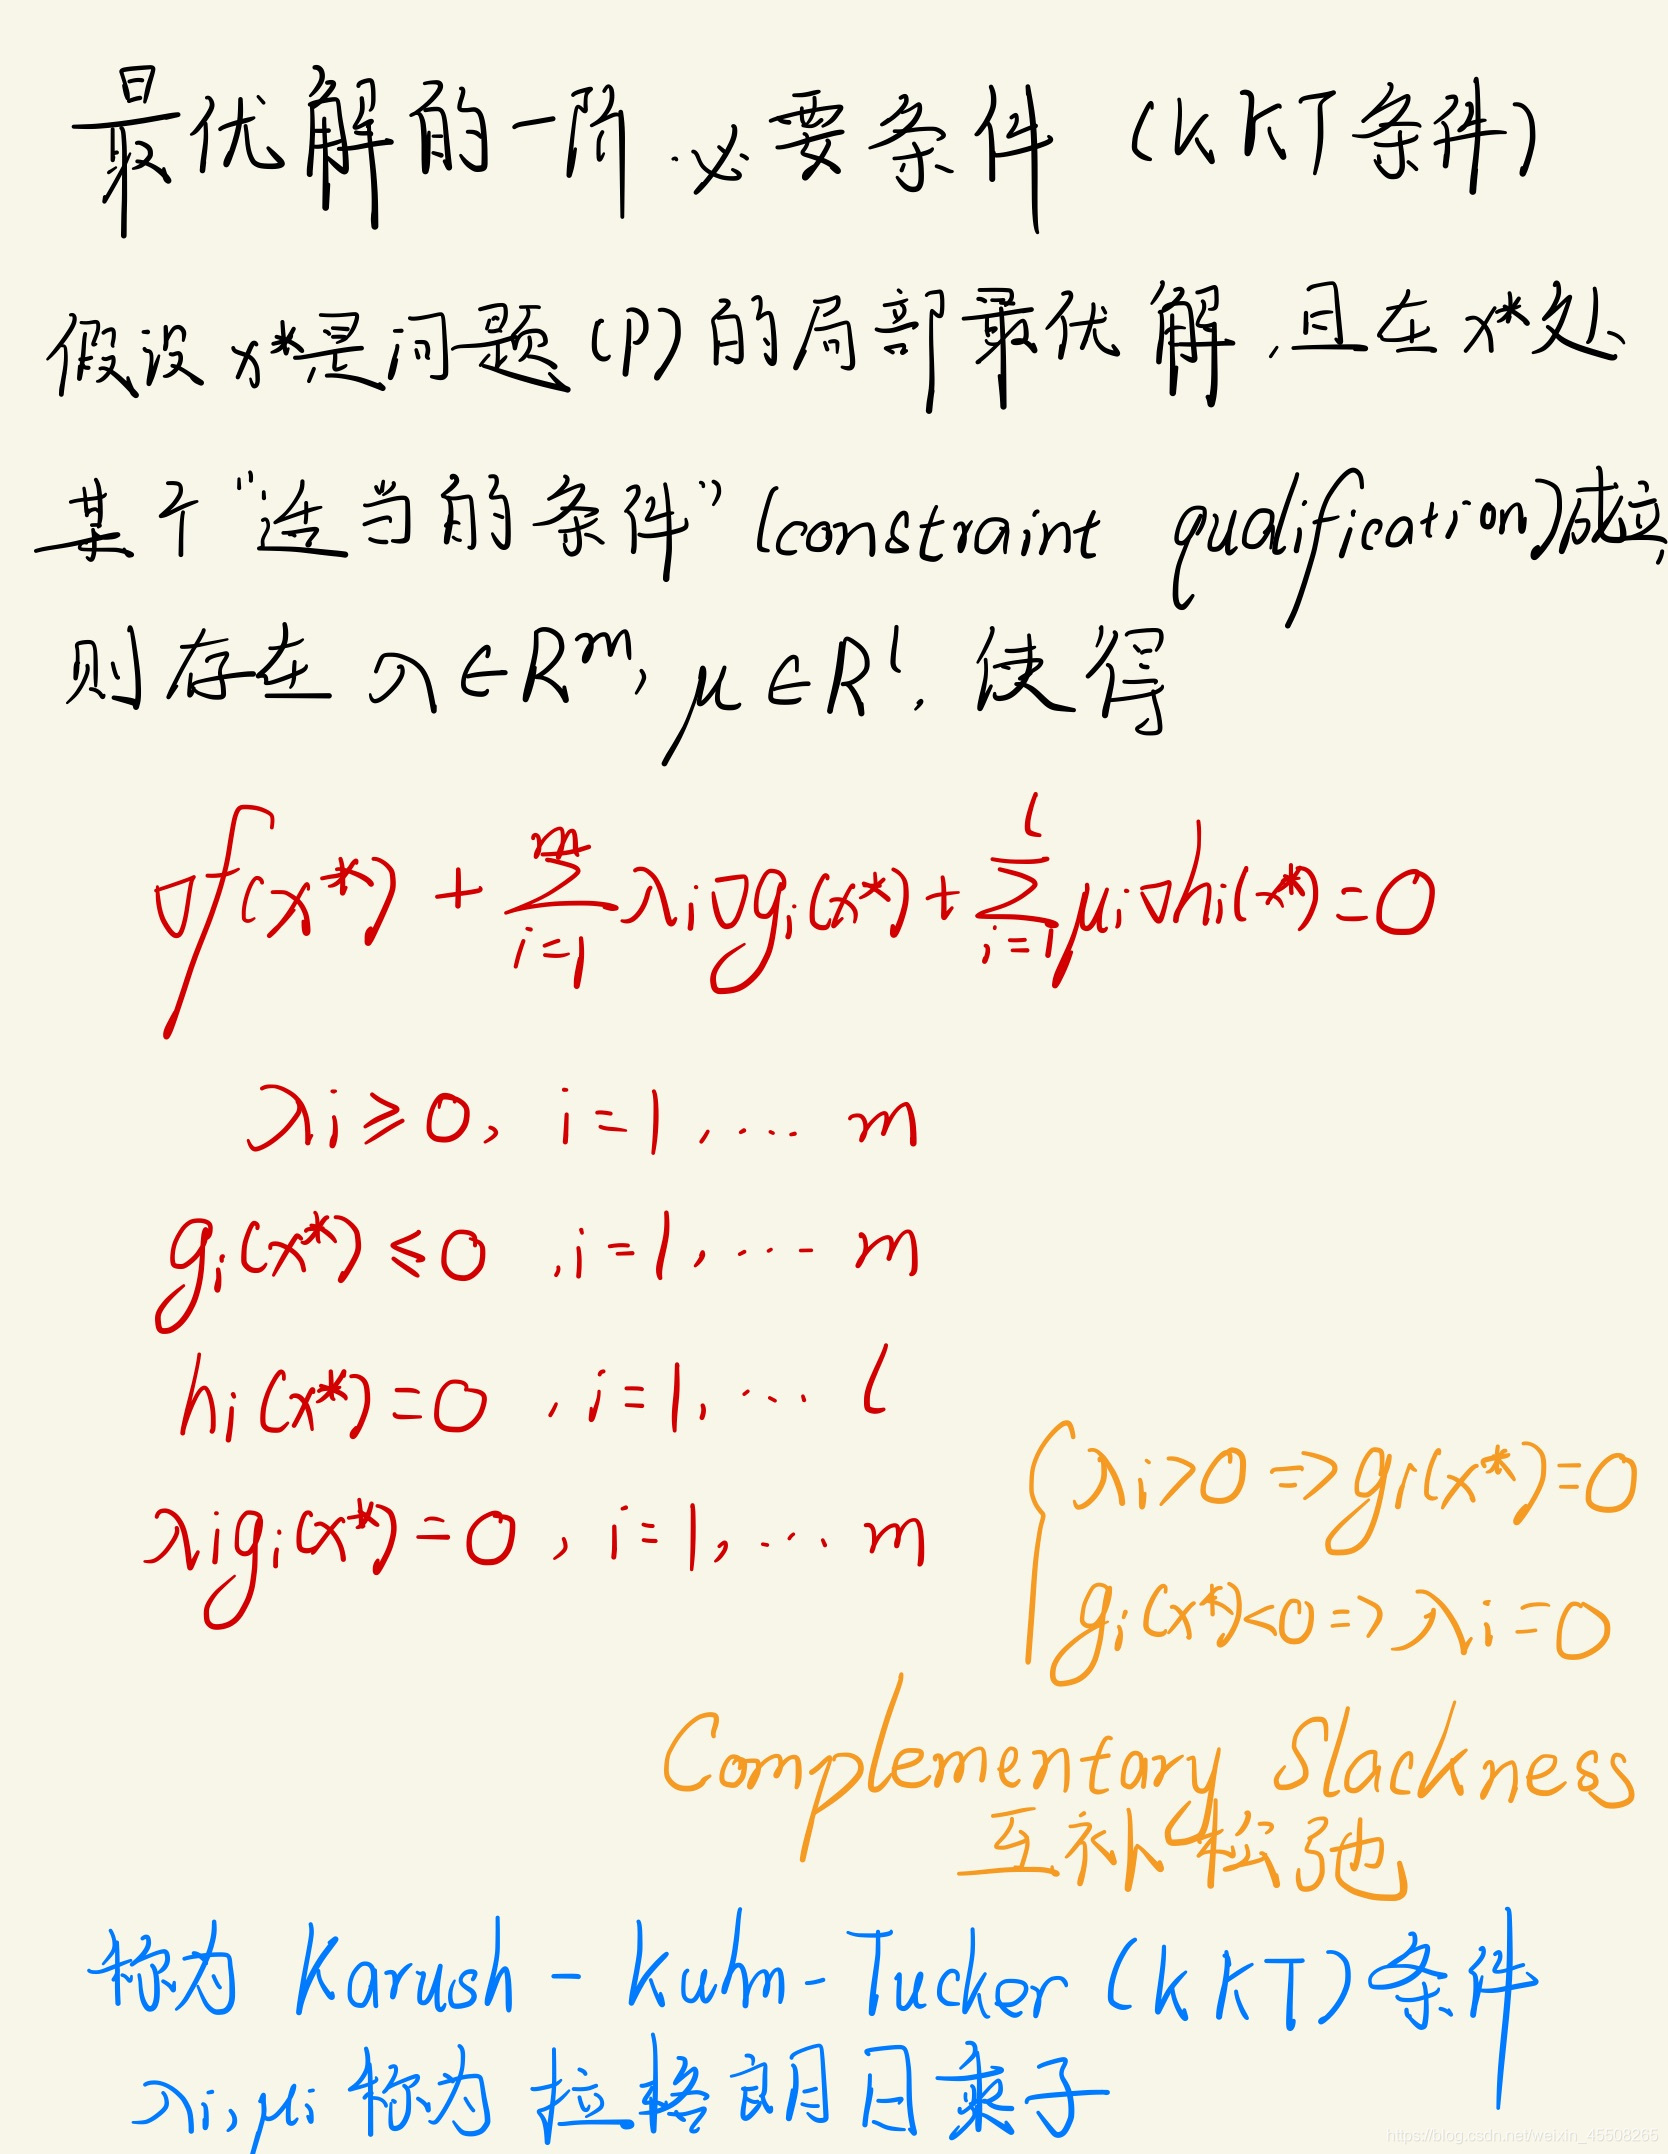 最优解的一阶必要条件 (KKT条件)
假设 x*是问题(P)的局部最优解,且在x*处
某个"适当的条件"(constraint qualification)成立,
则存在 λ∈R^m, μ∈R^l, 使得
∇f(x*) + ∑_{i=1}^{m} λi∇gi(x*) + ∑_{i=1}^{l} μi∇hi(x*) = 0
λi ≥ 0, i=1,... m
gi(x*) ≤ 0 , i=1,... m
hi(x*) = 0 , i=1,... l
λigi(x*) = 0 , i=1,... m
{ λi>0 => gi(x*)=0
gi(x*)<0 => λi=0
Complementary Slackness
互补松弛
称为 Karush - Kuhn - Tucker (KKT)条件
λi, μi 称为 拉格朗日乘子
https://blog.csdn.net/weixin_45508265